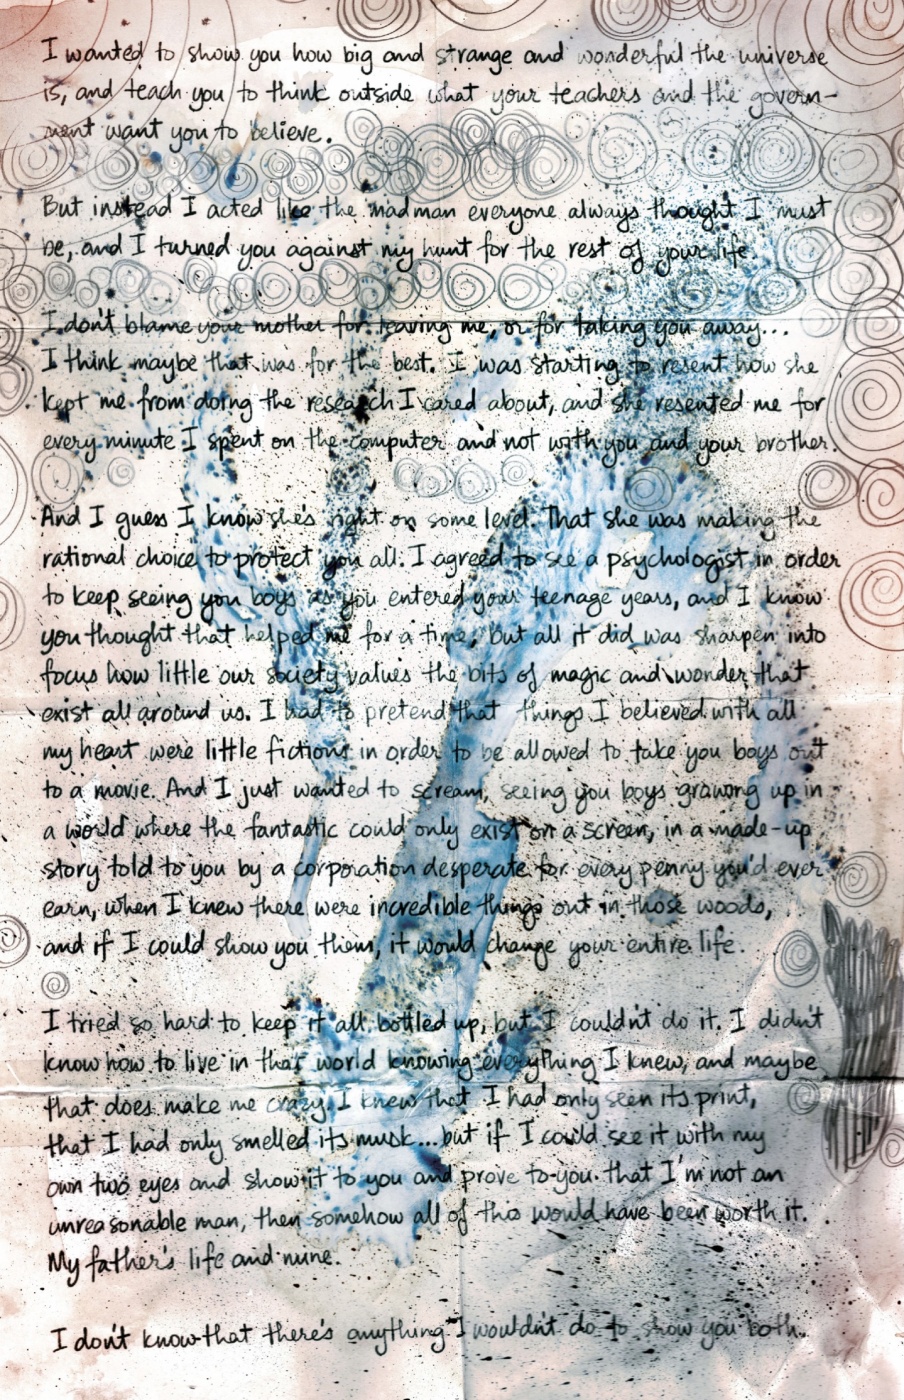 I wanted to show you how big and strange and wonderful the universe
is, and teach you to think outside what your teachers and the govern-
ment want you to believe.
But instead I acted like the madman everyone always thought I must
be, and I turned you against my hunt for the rest of your life.
I don't blame your mother for leaving me, or for taking you away...
I think maybe that was for the best. I was starting to resent how she
kept me from doing the research I cared about, and she resented me for
every minute I spent on the computer and not with you and your brother.
And I guess I know she's right on some level. That she was making the
rational choice to protect you all. I agreed to see a psychologist in order
to keep seeing you boys as you entered your teenage years, and I know
you thought that helped me for a time, but all it did was sharpen into
focus how little our society values the bits of magic and wonder that
exist all around us. I had to pretend that things I believed with all
my heart were little fictions in order to be allowed to take you boys out
to a movie. And I just wanted to scream, seeing you boys growing up in
a world where the fantastic could only exist on a screen, in a made-up
story told to you by a corporation desperate for every penny you'd ever
earn, when I knew there were incredible things out in those woods,
and if I could show you them, it would change your entire life.
I tried so hard to keep it all bottled up, but I couldn't do it. I didn't
know how to live in that world knowing everything I knew, and maybe
that does make me crazy. I knew that I had only seen its print,
that I had only smelled its musk...but if I could see it with my
own two eyes and show it to you and prove to you that I'm not an
unreasonable man, then somehow all of this would have been worth it.
My father's life and mine.
I don't know that there's anything I wouldn't do to show you both.